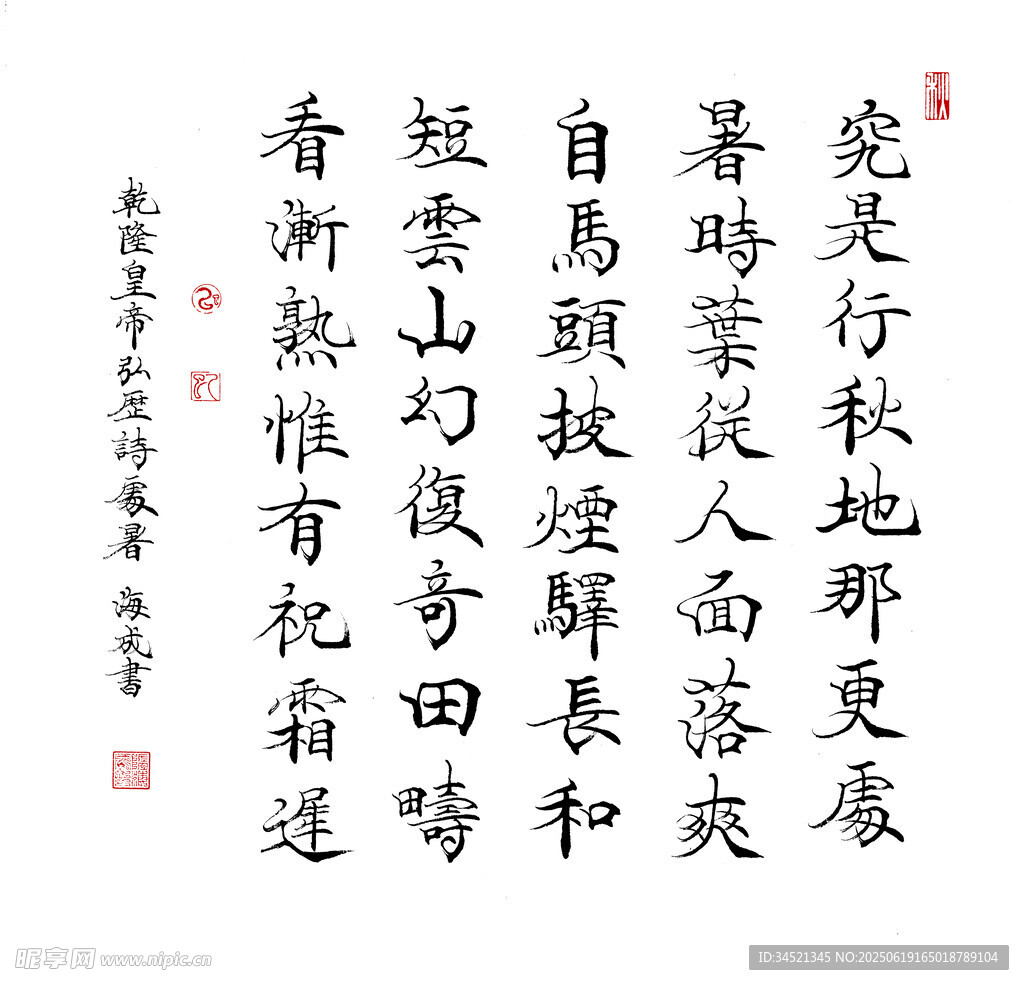 究是行秋地那更處
暑時葉從人面落爽
自馬頭披煙驛長和
短雲山幻復奇田疇
看漸熟惟有祝霜遲
乾隆皇帝弘歷詩處暑 海成書
秋
昵享网 www.nipic.cn
ID:34521345 NO:20250619165018789104